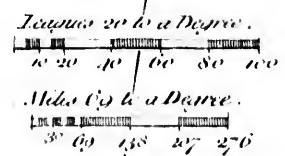 Leagues 20 to a Degree.
10 20 40 60 80 100
Miles 69 to a Degree.
30 69 138 207 276